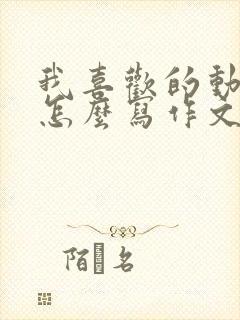 我喜歡的動
怎麼寫作文
陌 名